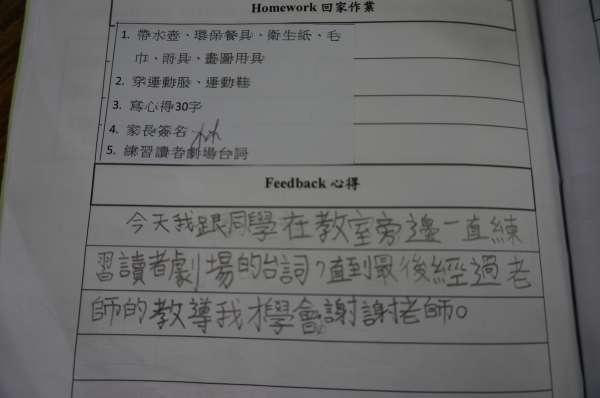 Homework 回家作業
1. 帶水壺、環保餐具、衛生紙、毛
巾、雨具、畫圖用具
2. 穿運動服、運動鞋
3. 寫心得30字
4. 家長簽名 林
5. 練習讀者劇場台詞
Feedback 心得
今天我跟同學在教室旁邊一直練
習讀者劇場的台詞,直到最後經過老
師的教導我才學會謝謝老師。